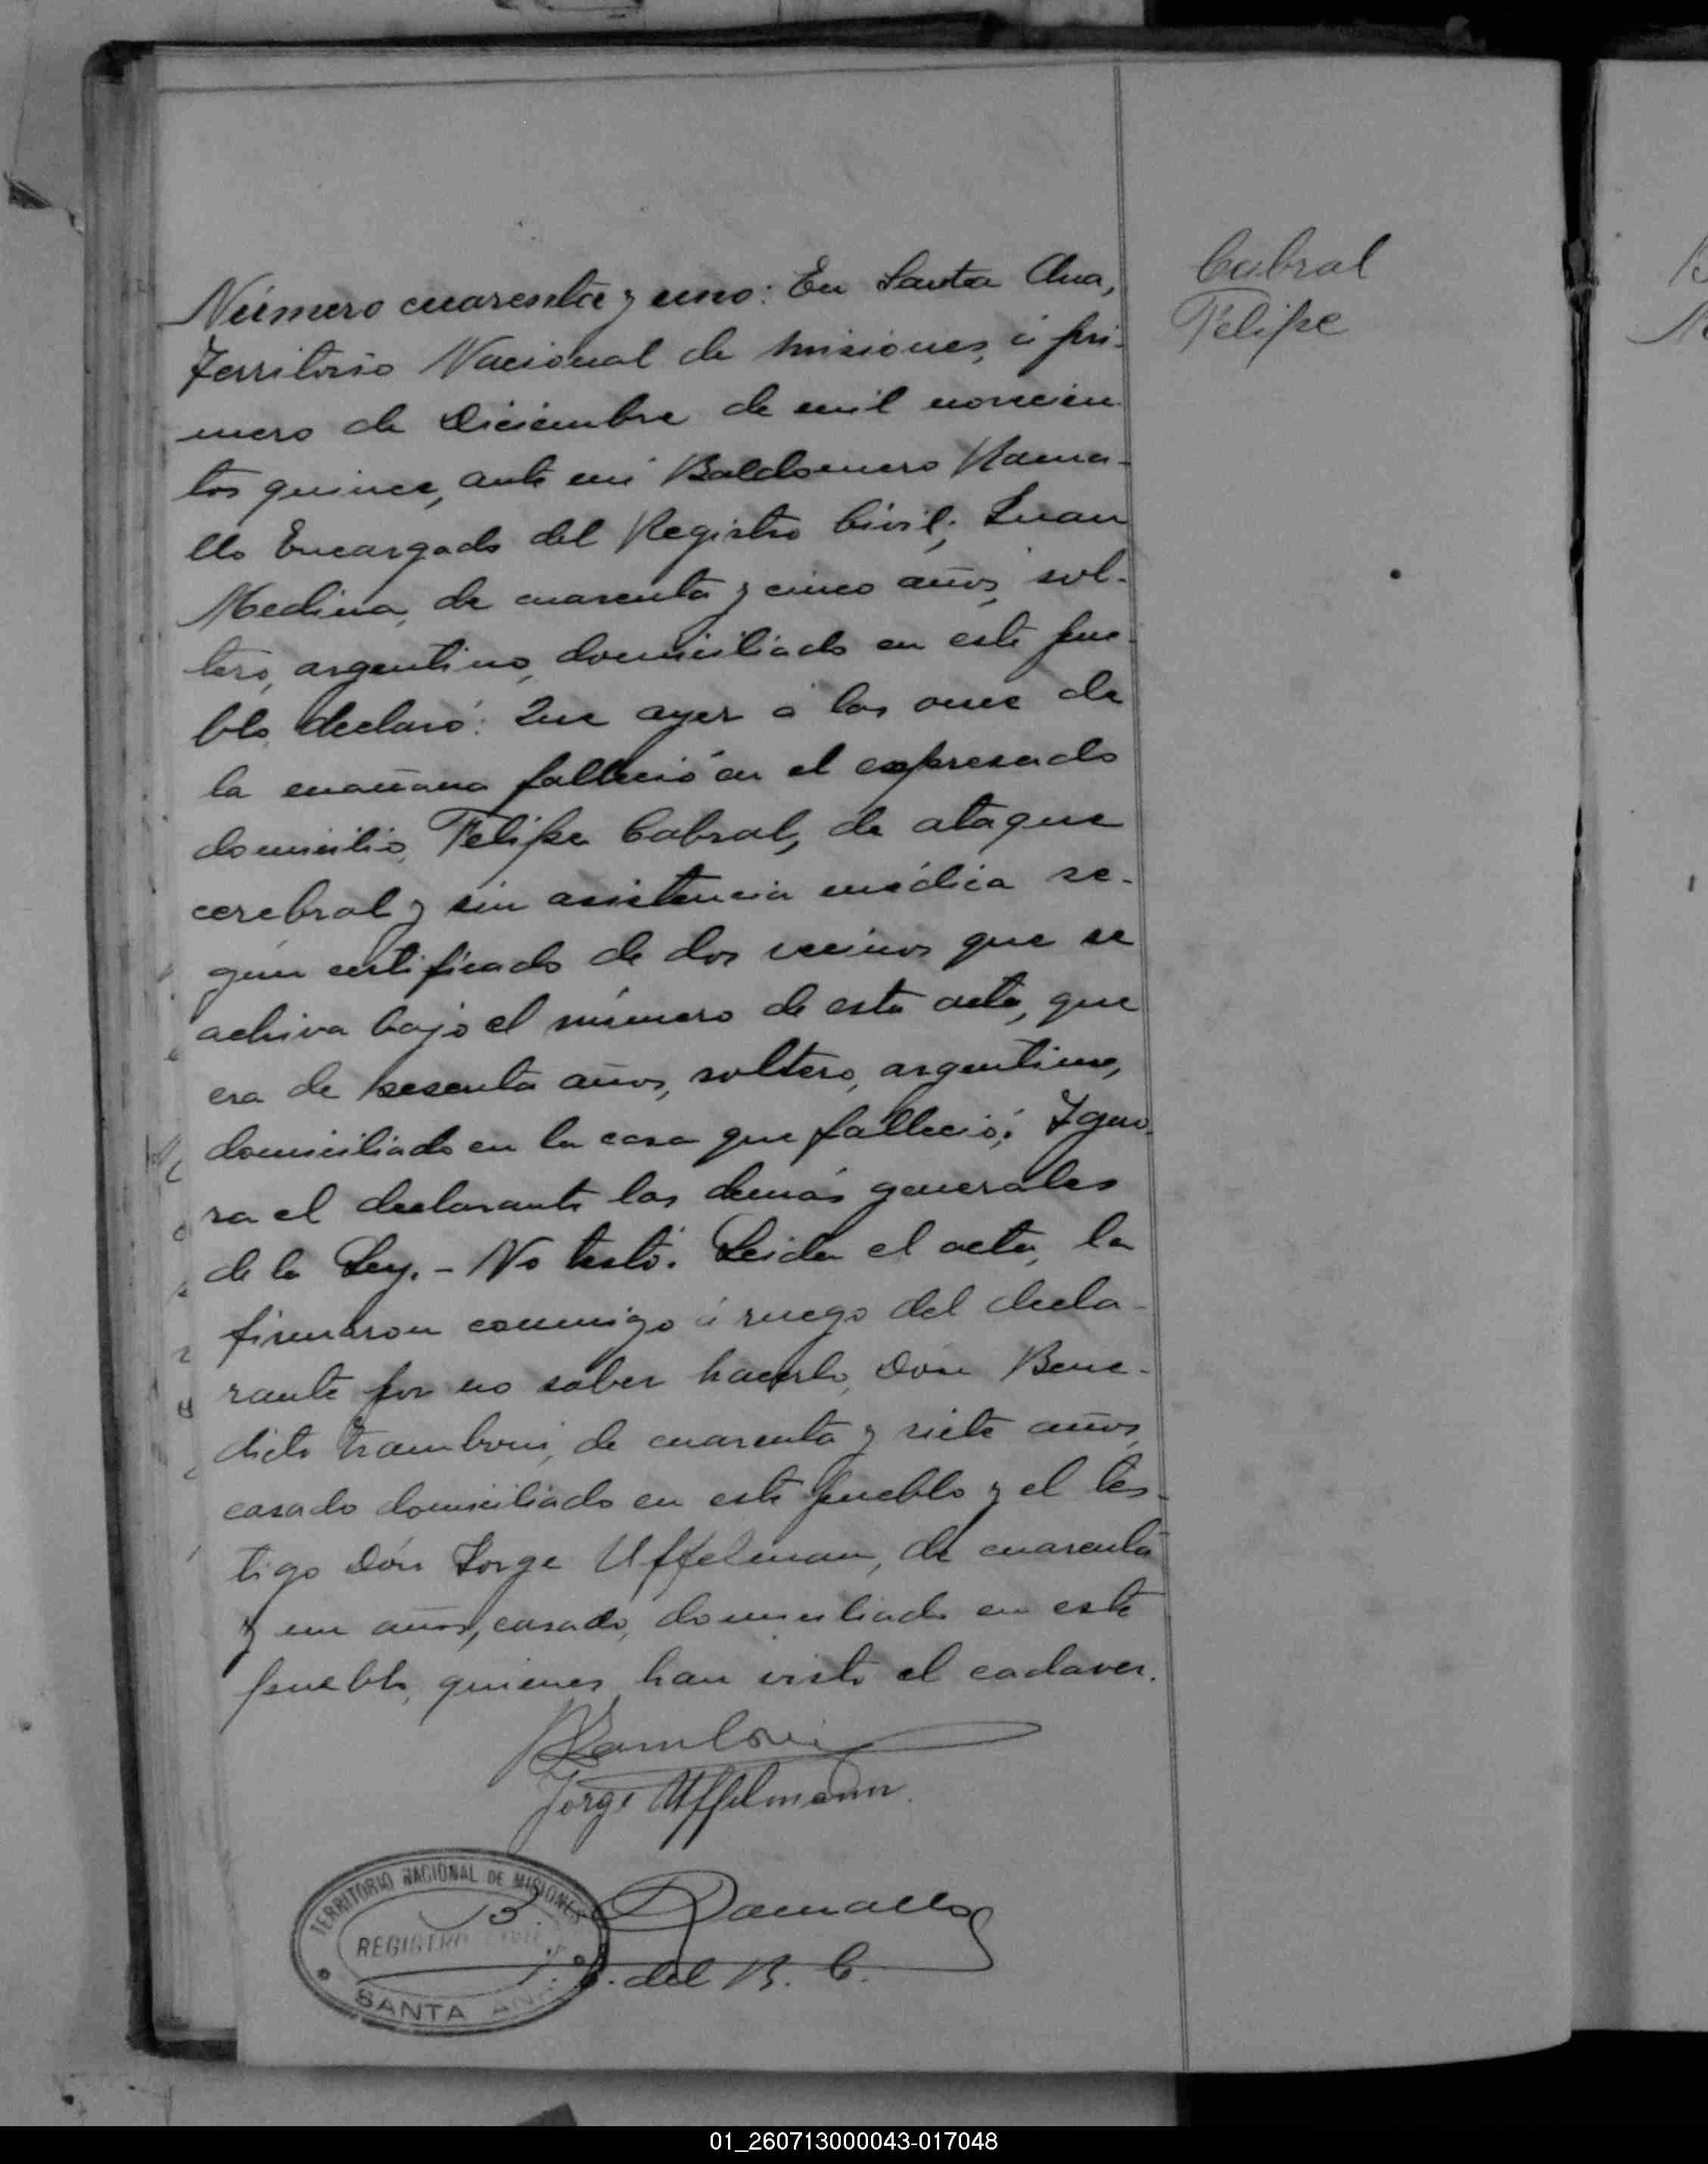 Cabral
Felipe
Número cuarenta y uno: En Santa Ana,
Territorio Nacional de Misiones, á pri-
mero de Diciembre de mil novecien
tos quince, ante mí Baldomero Rama-
llo Encargado del Registro Civil; Juan
Medina, de cuarenta y cinco años, sol-
tero, argentino, domiciliado en este pue-
blo, declaró: Que ayer á las once de
la mañana falleció en el expresado
domicilio, Felipe Cabral, de ataque
cerebral y sin asistencia médica se-
gún certificado de dos vecinos que se
achiva bajo el número de esta acta, que
era de sesenta años, soltero, argentino,
domiciliado en la casa que falleció; Igno-
ra el declarante las demás generales
de la Ley. - No testó. Leida el acta, la
firmaron conmigo á ruego del decla-
rante por no saber hacerlo, Don Bene-
dicto Tramboni, de cuarenta y siete años,
casado domiciliado en este pueblo y el tes-
tigo Dón Jorge Uffelman, de cuarenta
y un años, casado, domiciliado en este
pueblo, quienes han visto el cadaver.
Jorge Uffelmann
B. Ramallo
E. del R. C.
TERRITORIO NACIONAL DE MISIONES
REGISTRO CIVIL
SANTA ANA
01_260713000043-017048